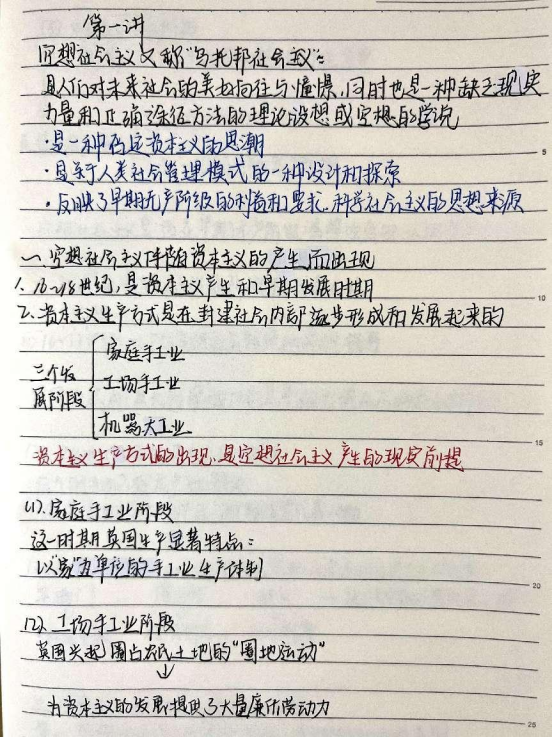 第一讲
空想社会主义又称"乌托邦社会主义":
是人们对未来社会的美好向往与憧憬,同时也是一种缺乏现实
力量和正确途径方法的理论设想或空想的学说
·是一种否定资本主义的思潮
·是关于人类社会管理模式的一种设计和探索
·反映了早期无产阶级的利益和要求.科学社会主义的思想来源
一、空想社会主义伴随资本主义的产生而出现
1. 16~18世纪,是资本主义产生和早期发展时期
2. 资本主义生产方式是在封建社会内部逐步形成和发展起来的
三个发
展阶段
家庭手工业
工场手工业
机器大工业
资本主义生产方式的出现,是空想社会主义产生的现实前提
(1).家庭手工业阶段
这一时期英国生产显著特点:
以"家"为单位的手工业生产体制
(2).工场手工业阶段
英国兴起圈占农民土地的"圈地运动"
↓
为资本主义的发展提供了大量廉价劳动力
5
10
15
20
25